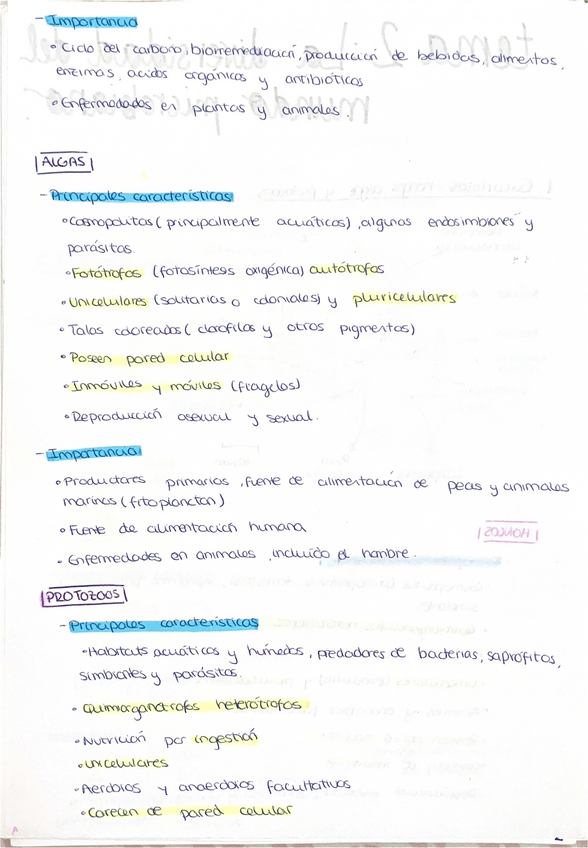 - Importancia
• Ciclo del carbono, biorremediación, producción de bebidas, alimentos,
enzimas, acidos orgánicos y antibióticos
• Enfermedades en plantas y animales.
ALGAS
- Principales características
• Cosmopolitas (principalmente acuáticos), algunas endosimbiones y
parásitos.
• Fotótrofos (fotosíntesis oxigénica) autótrofos
• Unicelulares (solitarias o coloniales) y pluricelulares
• Talos coloreados (clorofilas y otros pigmentos)
• Poseen pared celular
• Inmóviles y móviles (flagelos)
• Reproducción asexual y sexual.
- Importancia
• Productores primarios, fuente de alimentación de peces y animales
marinos (fitoplancton)
• Fuente de alimentación humana
HONGOS
• Enfermedades en animales, incluido el hombre.
PROTOZOOS
- Principales características
• Habitats acuáticos y húmedos, predadores de bacterias, saprófitos,
simbiontes y parásitos.
• Quimiorganotrofos heterótrofos
• Nutrición por ingestión
• Unicelulares
• Aerobios y anaerobios facultativos
• Carecen de pared celular